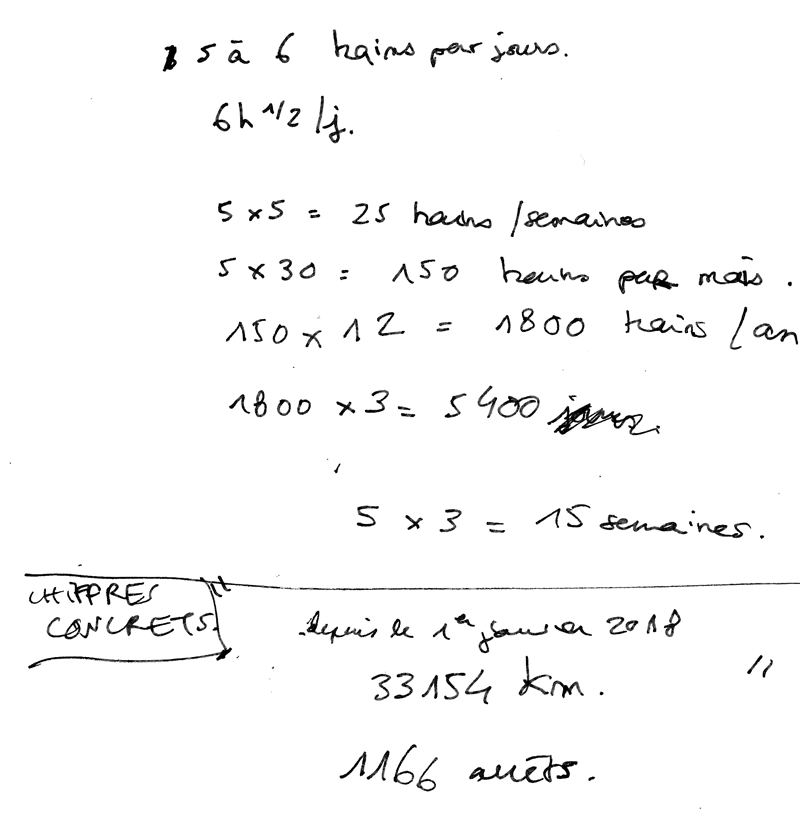 5 à 6 trains par jours.
6h 1/2 /j.
5 x 5 = 25 trains /semaines
5 x 30 = 150 trains par mois.
150 x 12 = 1800 trains /an
1800 x 3 = 5400
5 x 3 = 15 semaines.
CHIFFRES
CONCRETS.
depuis le 1er janvier 2018
33154 km.
1166 arrêts.